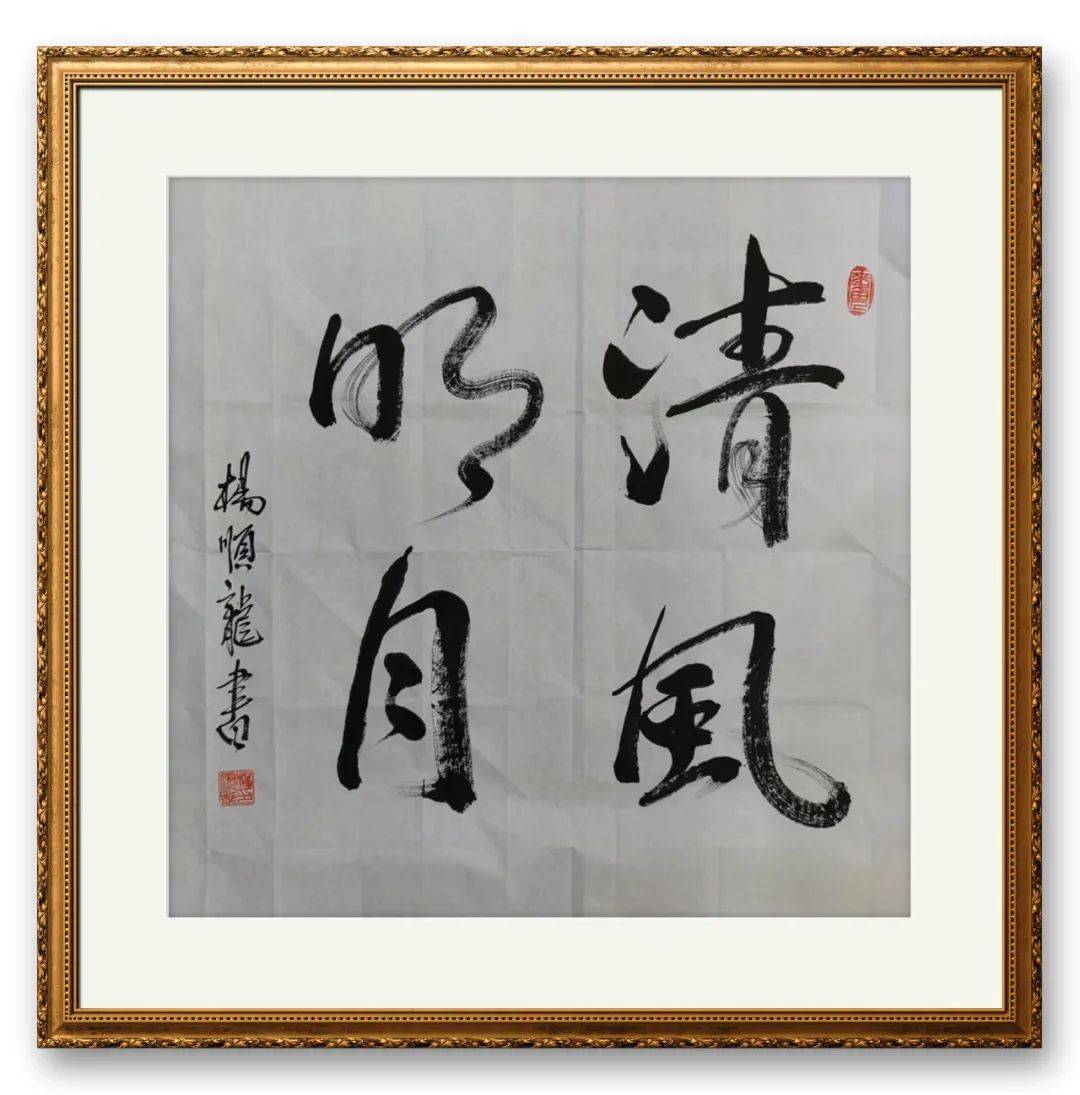 清風
明月
楊順龍書